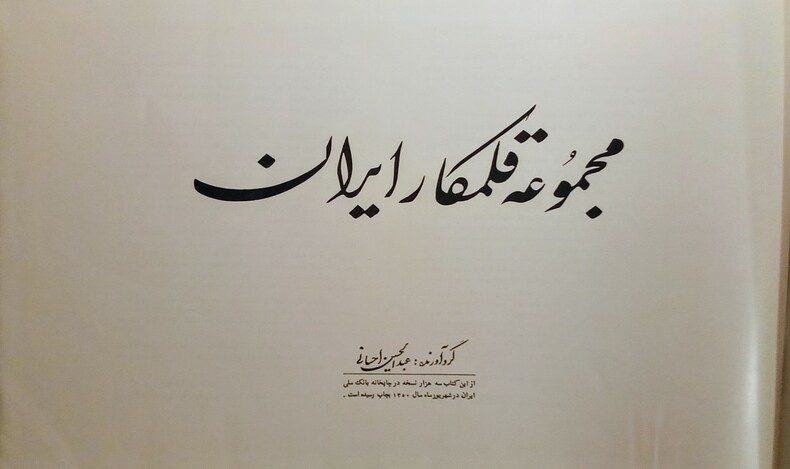 مجموعهٔ قلمکار ایران
گردآورنده : عبدالحسین احسانی
از این کتاب سه هزار نسخه در چاپخانه بانک ملی
ایران در شهریور ماه سال ۱۳۵۰ بچاپ رسیده است .